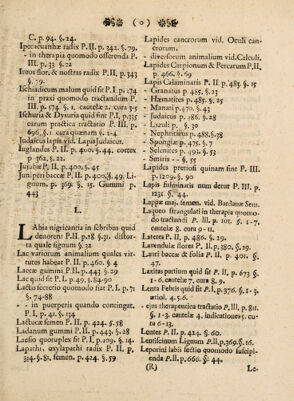 ( 0 )
C. p. 94. §. 24.
Ipecacuanhæ radix P. II. p. 342. §. 79.
- in therapia quomodo offerenda P.
III. p. 33. §. 72
Ireos flor. & nostras radix P. II, p. 343
§. 79.
Ischiadicum malum quid sit P. I. p. 174
in praxi quomodo tractandum P.
III. p. 174. §. 1. cautelæ 2. cura 3-5
Ischuria & Dysuria quid sint P. I. p. 335
earum practica tractatio P. III. p.
696, §. 1. cura quænam §. 1-4
Judaicus lapis vid. Lapis Judaicus.
Juglandes P. II. p. 400. §. 44. cortex
p. 362. §. 22.
Jujubæ P. II, p. 400. §. 45
Juniperi baccæ P. II. p. 400. §. 49. Li-
gnum. p. 369. §. 15. Gummi p.
443
L.
Labia nigricantia in febribus quid
denotent P. II. p. 28 §. 31. distor-
ta quale signum §. 32
Lac variorum animalium quales vir-
tutes habeat P. III. p. 460. §. 4
Laccæ gummi P. II. p. 443 §. 29
Lac quid sit P. I. p. 49. §. 84-90
Lactis secretio quomodo fiat P. I. p. 71
§. 74-88
- - in puerperis quando contingat.
P. I. p. 42. §. 134
Lactucæ semen P. II. p. 424. §. 58
Ladanum gummi P. II. p. 443. §. 28
Laesio quotuplex sit P. I. p. 109. §. 14.
Lapathi, oxylapathi radix P. II. p.
334. §. 81. semen. p. 424. §. 59
Lapides cancrorum vid. Oculi can-
crorum.
- diversorum animalium vid. Calculi.
Lapides Carpionum & Percarum P. II.
p. 466. §. 69
Lapis Calaminaris P. II. p. 483. §. 15
- Granatus p. 485. §. 23
- Hæmatites p. 485. §. 25
- Manati p. 470. §. 43
- Judaicus p. 486. §. 28
- Lazuli p. §. 30
- Nephriticus p. 488. §. 38
- Spongiæ p. 475. §. 7
- Selenites p. 492. §. 53
- Smiris - - §. 55
Lapides pretiosi quinam sint P. III.
p. 1209. §. 90
Lapis fulminaris num detur P. III. p.
1231 §. 44.
Lappæ maj. semen. vid. Bardanæ Sem.
Laqueo strangulati in therapia quomo-
do tractandi P. III. p. 101. §. 1-7.
cautelæ 8. cura 9-11.
Latens P. II. p. 486. §. 29.
Lavendulæ flores P. II. p. 380. §. 29.
Lauri baccæ & folia P. II. p. 401. §.
47.
Laxitas partium quid sit P. II. p. 673 §.
1-6. cautelæ 7. cura 8. 9.
Lenta Febris quid sit P. I. p. 376. §. 1-3.
artiol. 4. 5. 6.
- ejus therapeutica tractatio P. III. p. 811.
§. 1-3. cautelæ 4. indicationes 5. cu-
ra 6-13.
Lentes P. II. p. 424. §. 60.
Lentiscinum Lignum P. II. p. 369. §. 16.
Leporini labii sectio quomodo suscipi-
enda P. II. p. 666. §: 44.
(R)
Le-